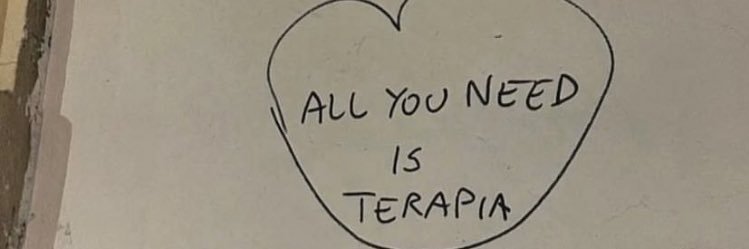 ALL YOU NEED
IS
TERAPIA